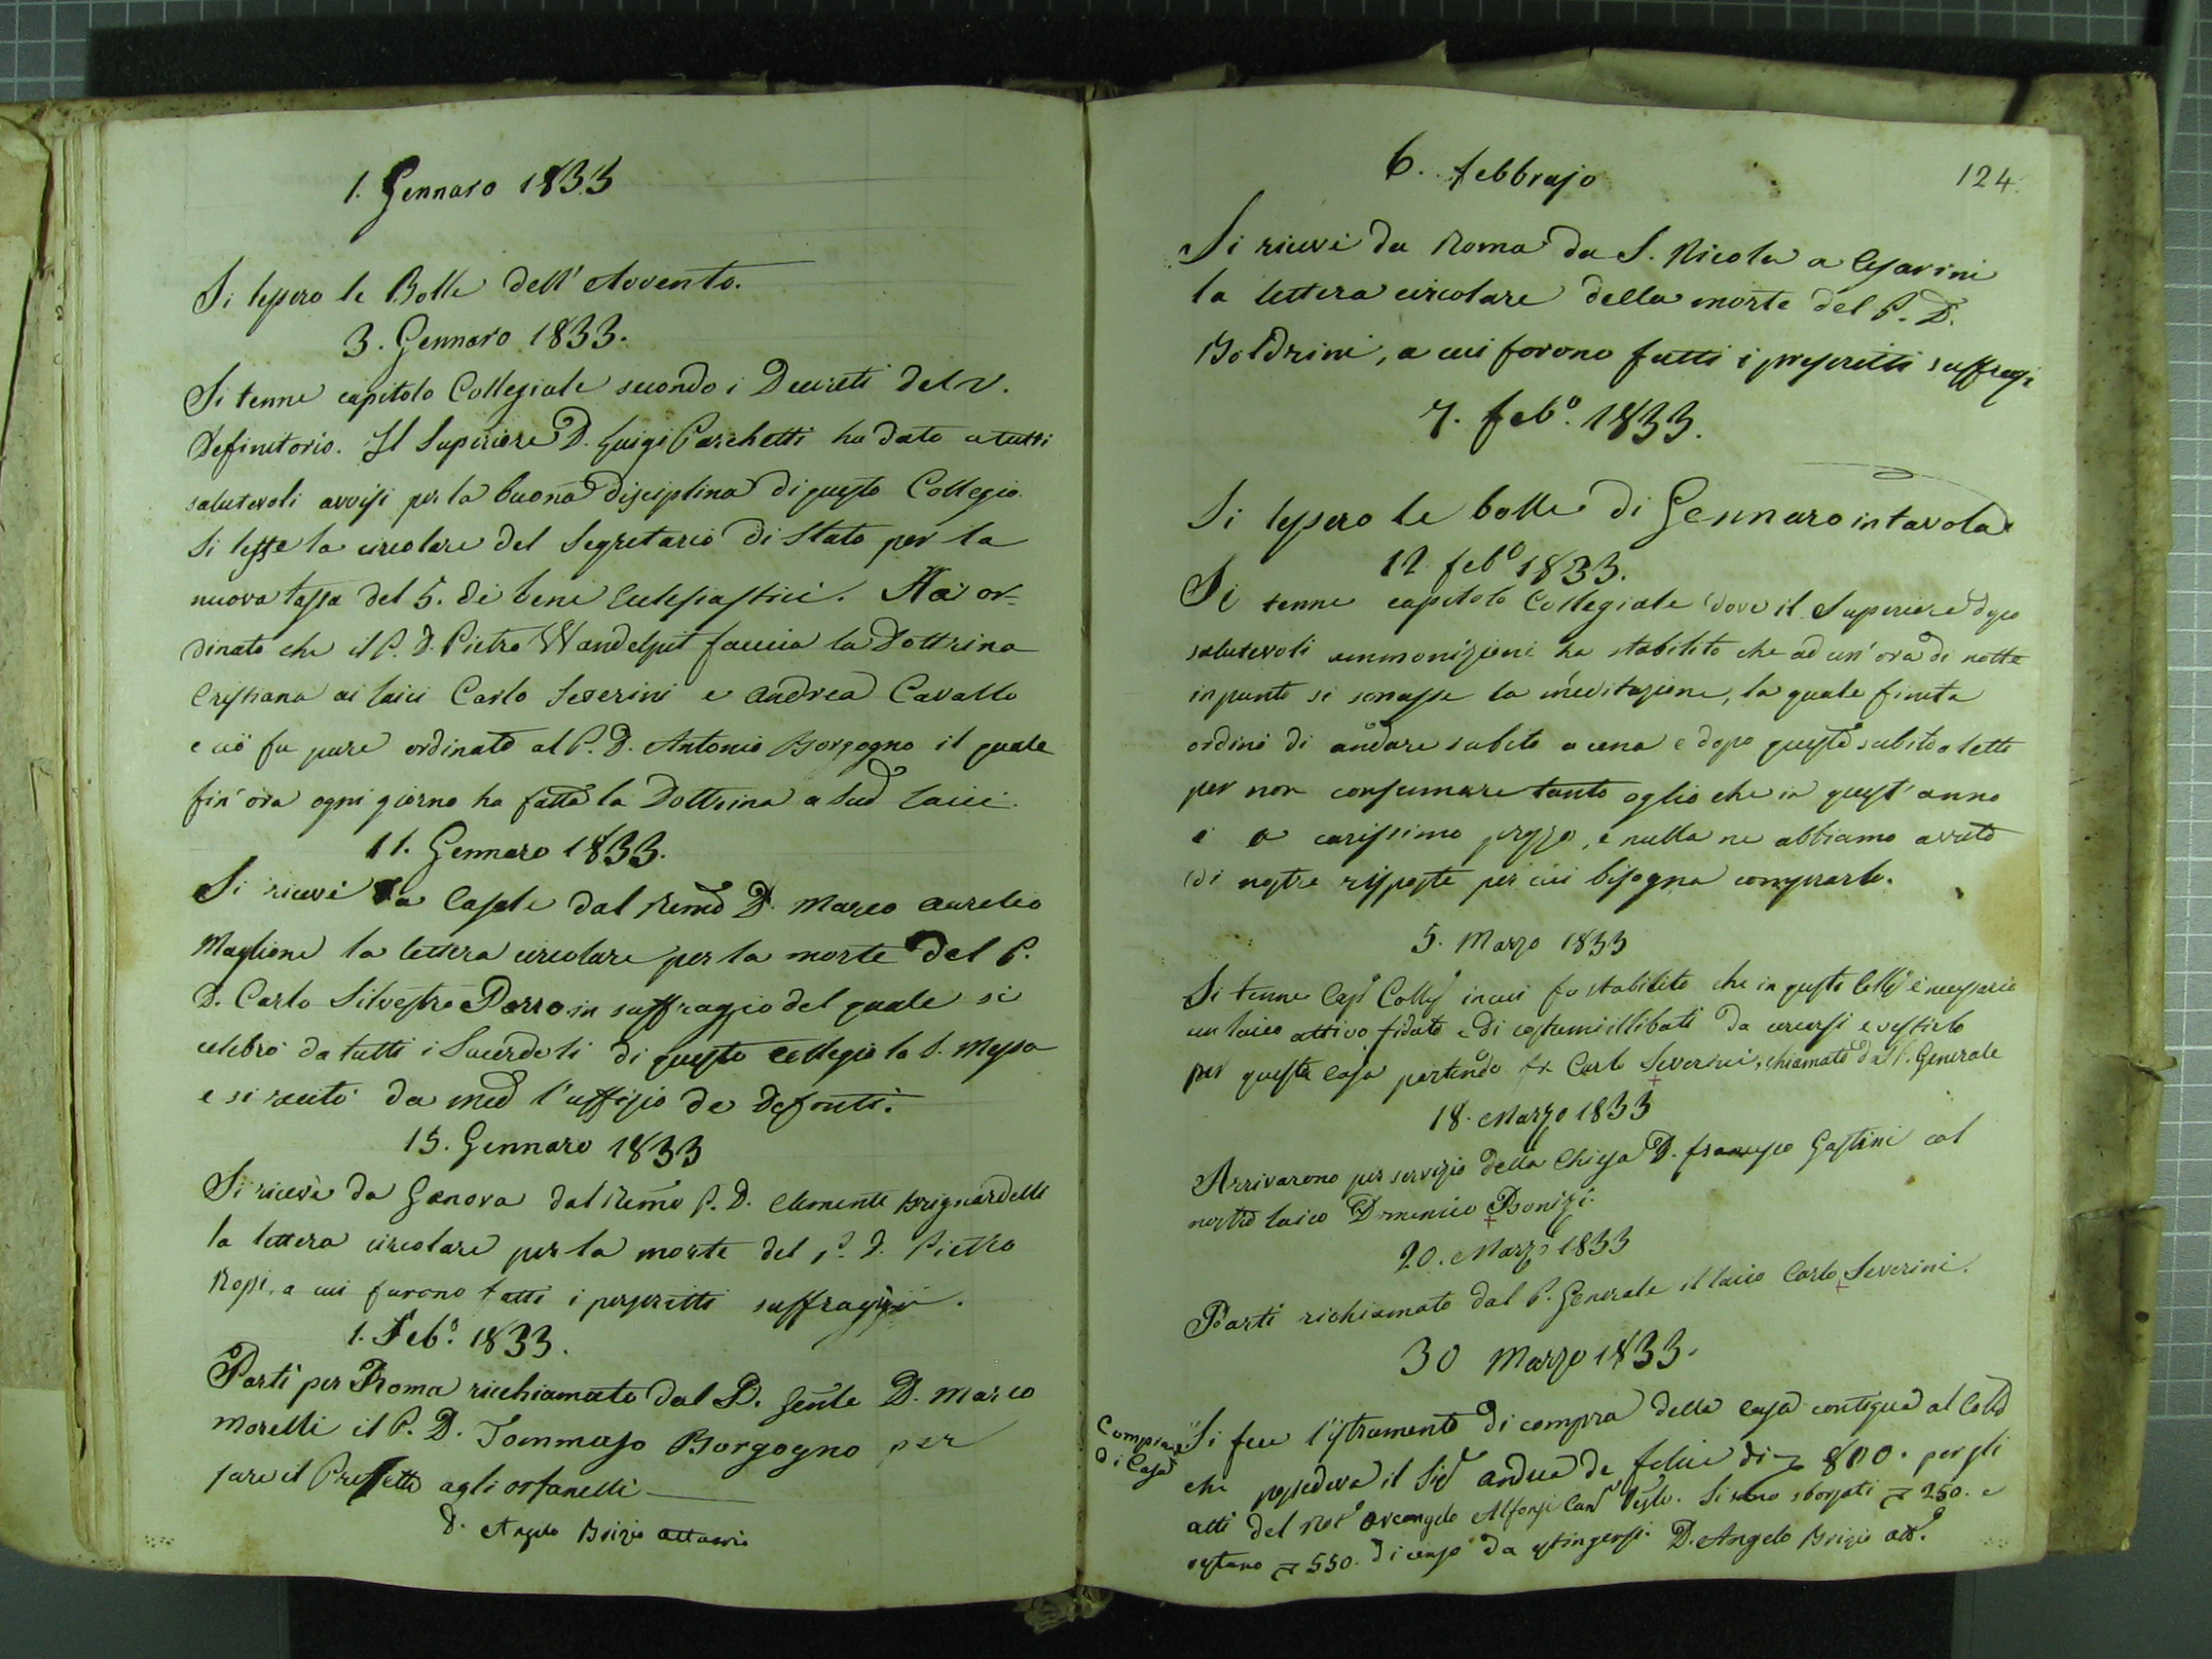 1. Gennaro 1833
Si lessero le Bolle dell'Avvento.
3. Gennaro 1833.
Si tenne capitolo Collegiale secondo i Decreti del V.
Definitorio. Il Superiore D. Luigi Parchetti ha dato a tutti
salutevoli avvisi per la buona disciplina di questo Collegio.
Si lesse la circolare del Segretario di Stato per la
nuova tassa del 5. di beni Ecclesiastici. Ha or=
dinato che il P. D. Pietro Wandelpit faccia la Dottrina
Cristiana ai laici Carlo Severini e Andrea Cavallo
e ciò fu pure ordinato al P. D. Antonio Borgogno il quale
fin'ora ogni giorno ha fatta la Dottrina a sud laici.
11. Gennaro 1833.
Si ricevè da Casale dal Remo D. Marco Aurelio
Maglione la lettera circolare per la morte del P.
D. Carlo Silvestro Porro in suffragio del quale si
celebrò da tutti i Sacerdoti di questo Collegio la S. Messa
e si recitò da med l'uffizio de Defonti.
15. Gennaro 1833
Si ricevè da Genova dal Remo P. D. Clemente Brignardelli
la lettera circolare per la morte del P. D. Pietro
Rossi, a cui furono fatti i prescritti suffragi.
1. Feb.º 1833.
Partì per Roma richiamato dal P. Genle D. Marco
Morelli il P. D. Tommaso Borgogno per
fare il Prefetto agli orfanelli
D. Angelo Brizio attuario
6. febbrajo
124.
Si ricevè da Roma da S. Nicola a Cesarini
la lettera circolare della morte del P. D.
Boldrini, a cui forono fatti i prescritti suffragi
7. feb.º 1833.
Si lessero le bolle di Gennaro in tavola.
12 febº 1833.
Si tenne capitolo Collegiale dove il Superiore dopo
salutevoli ammonizioni ha stabilito che ad un'ora di notte
in punto si sonasse la meditazione, la quale finita
ordinò di andare subito a cena e dopo questa subito a letto
per non consumare tanto oglio che in quest'anno
è a carissimo prezzo, e nulla ne abbiamo avuto
di nostre risposte per cui bisogna comprarlo.
5. Marzo 1833
Si tenne Capº Collº in cui fu stabilito che in questo Collº è necessario
un laico attivo, fidato e di costumi illibati da cercarsi e vestirlo
per questa casa partendo Fr. Carlo Severini, chiamato dal P. Generale
18. Marzo 1833
Arrivarono per servizio della Chiesa D. Francesco Gastini col
nostro laico Domenico Bonizi.
20. Marzo 1833
Partì richiamato dal P. Generale il laico Carlo Severini.
30 Marzo 1833.
Compra
di Casa
Si fece l'istrumento di compra della casa contigua al Collº
che possedeva il Sigr Andrea de Felice di 800. per gli
atti del Notº Arcangelo Alfonsi. Si sono sborsati 250. e
restano 550. di censo da estinguersi. D. Angelo Brizio attº.